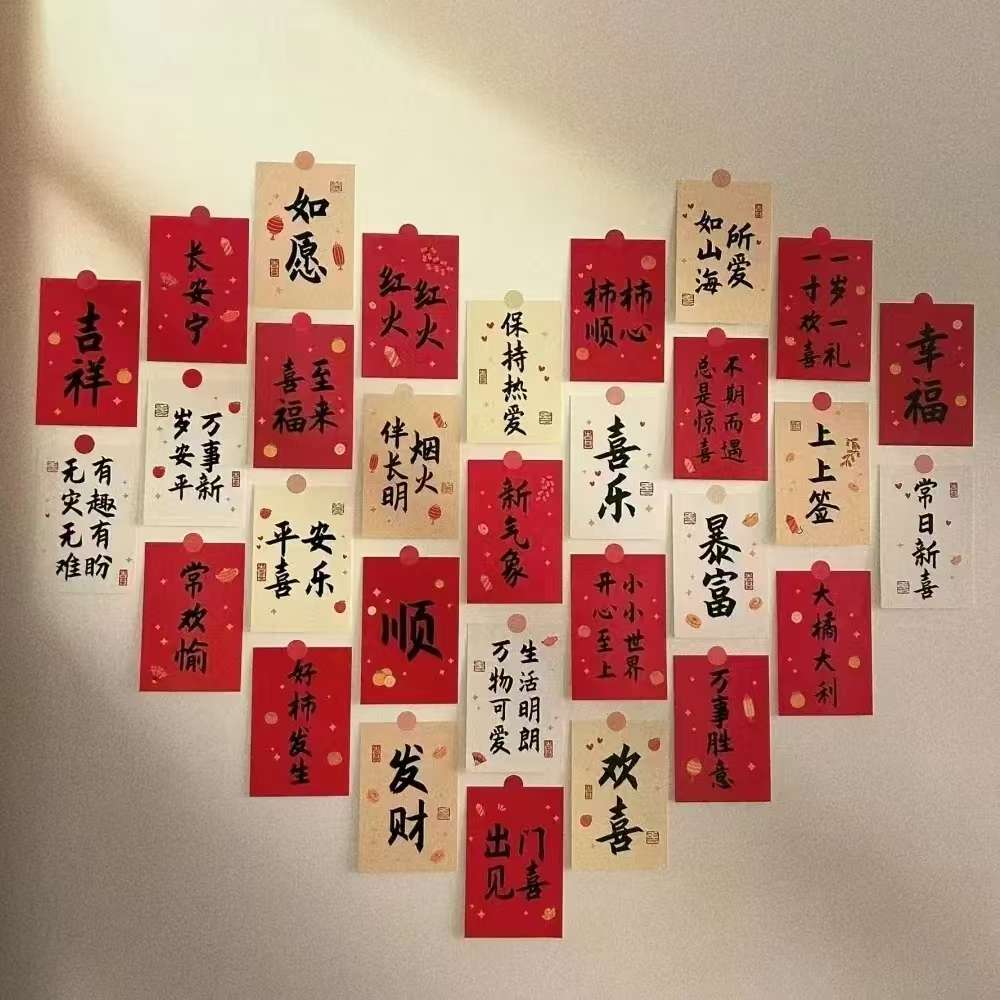 吉祥
有趣有盼
无灾无难
长安宁
万事新
岁安平
常欢愉
如愿
喜至
福来
平安
喜乐
好柿发生
红红
火火
烟火
伴长明
顺
发财
保持热爱
新气象
生活明朗
万物可爱
出门
见喜
柿柿
顺心
喜乐
小小世界
开心至上
欢喜
所爱
如山海
不期而遇
总是惊喜
暴富
万事胜意
一岁一礼
一寸欢喜
上上签
大橘大利
幸福
常日新喜